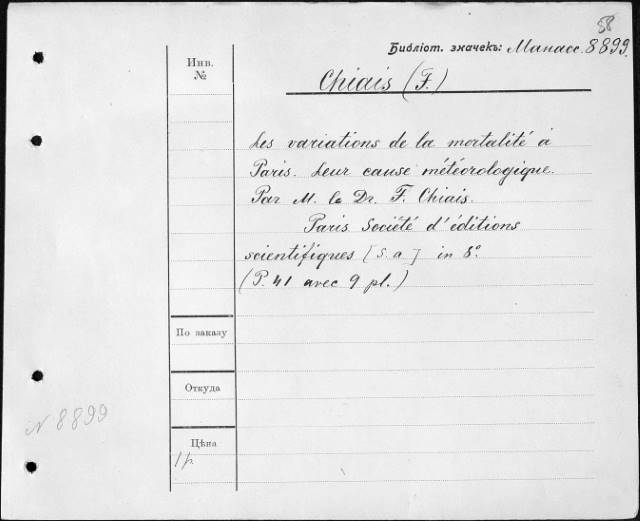 58
Библіот. значекъ: Манасс. 8899.
Инв.
№
Chiais (F.)
Les variations de la mortalité à
Paris. Leur cause météorologique.
Par M. le Dr. F. Chiais.
Paris. Société d'éditions
scientifiques [S. a] in 8º.
(P. 41 avec 9 pl.)
По заказу
Откуда
N 8899
Цѣна
1 р.